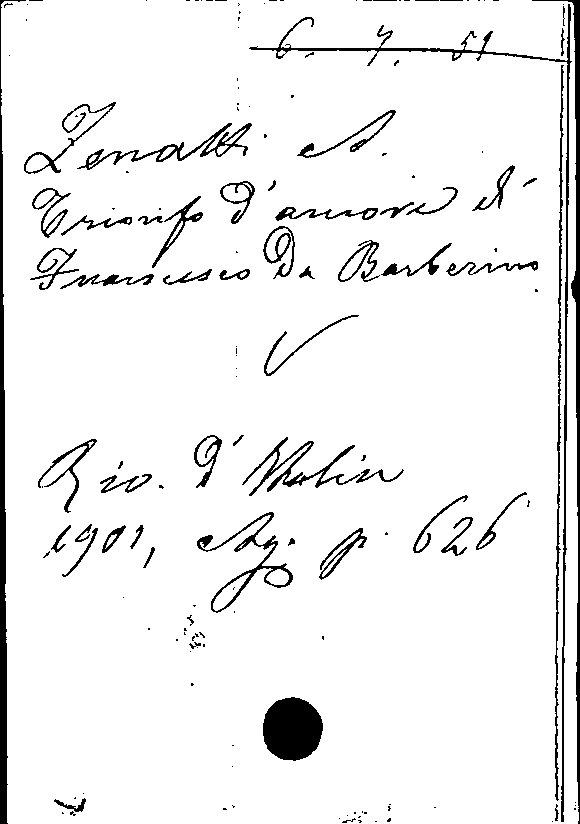 6. 7. 51
Zenatti A.
Trionfo d'amore di
Francesco Da Barberino
V
Riv. d'Italia
1901, Ag. p. 626